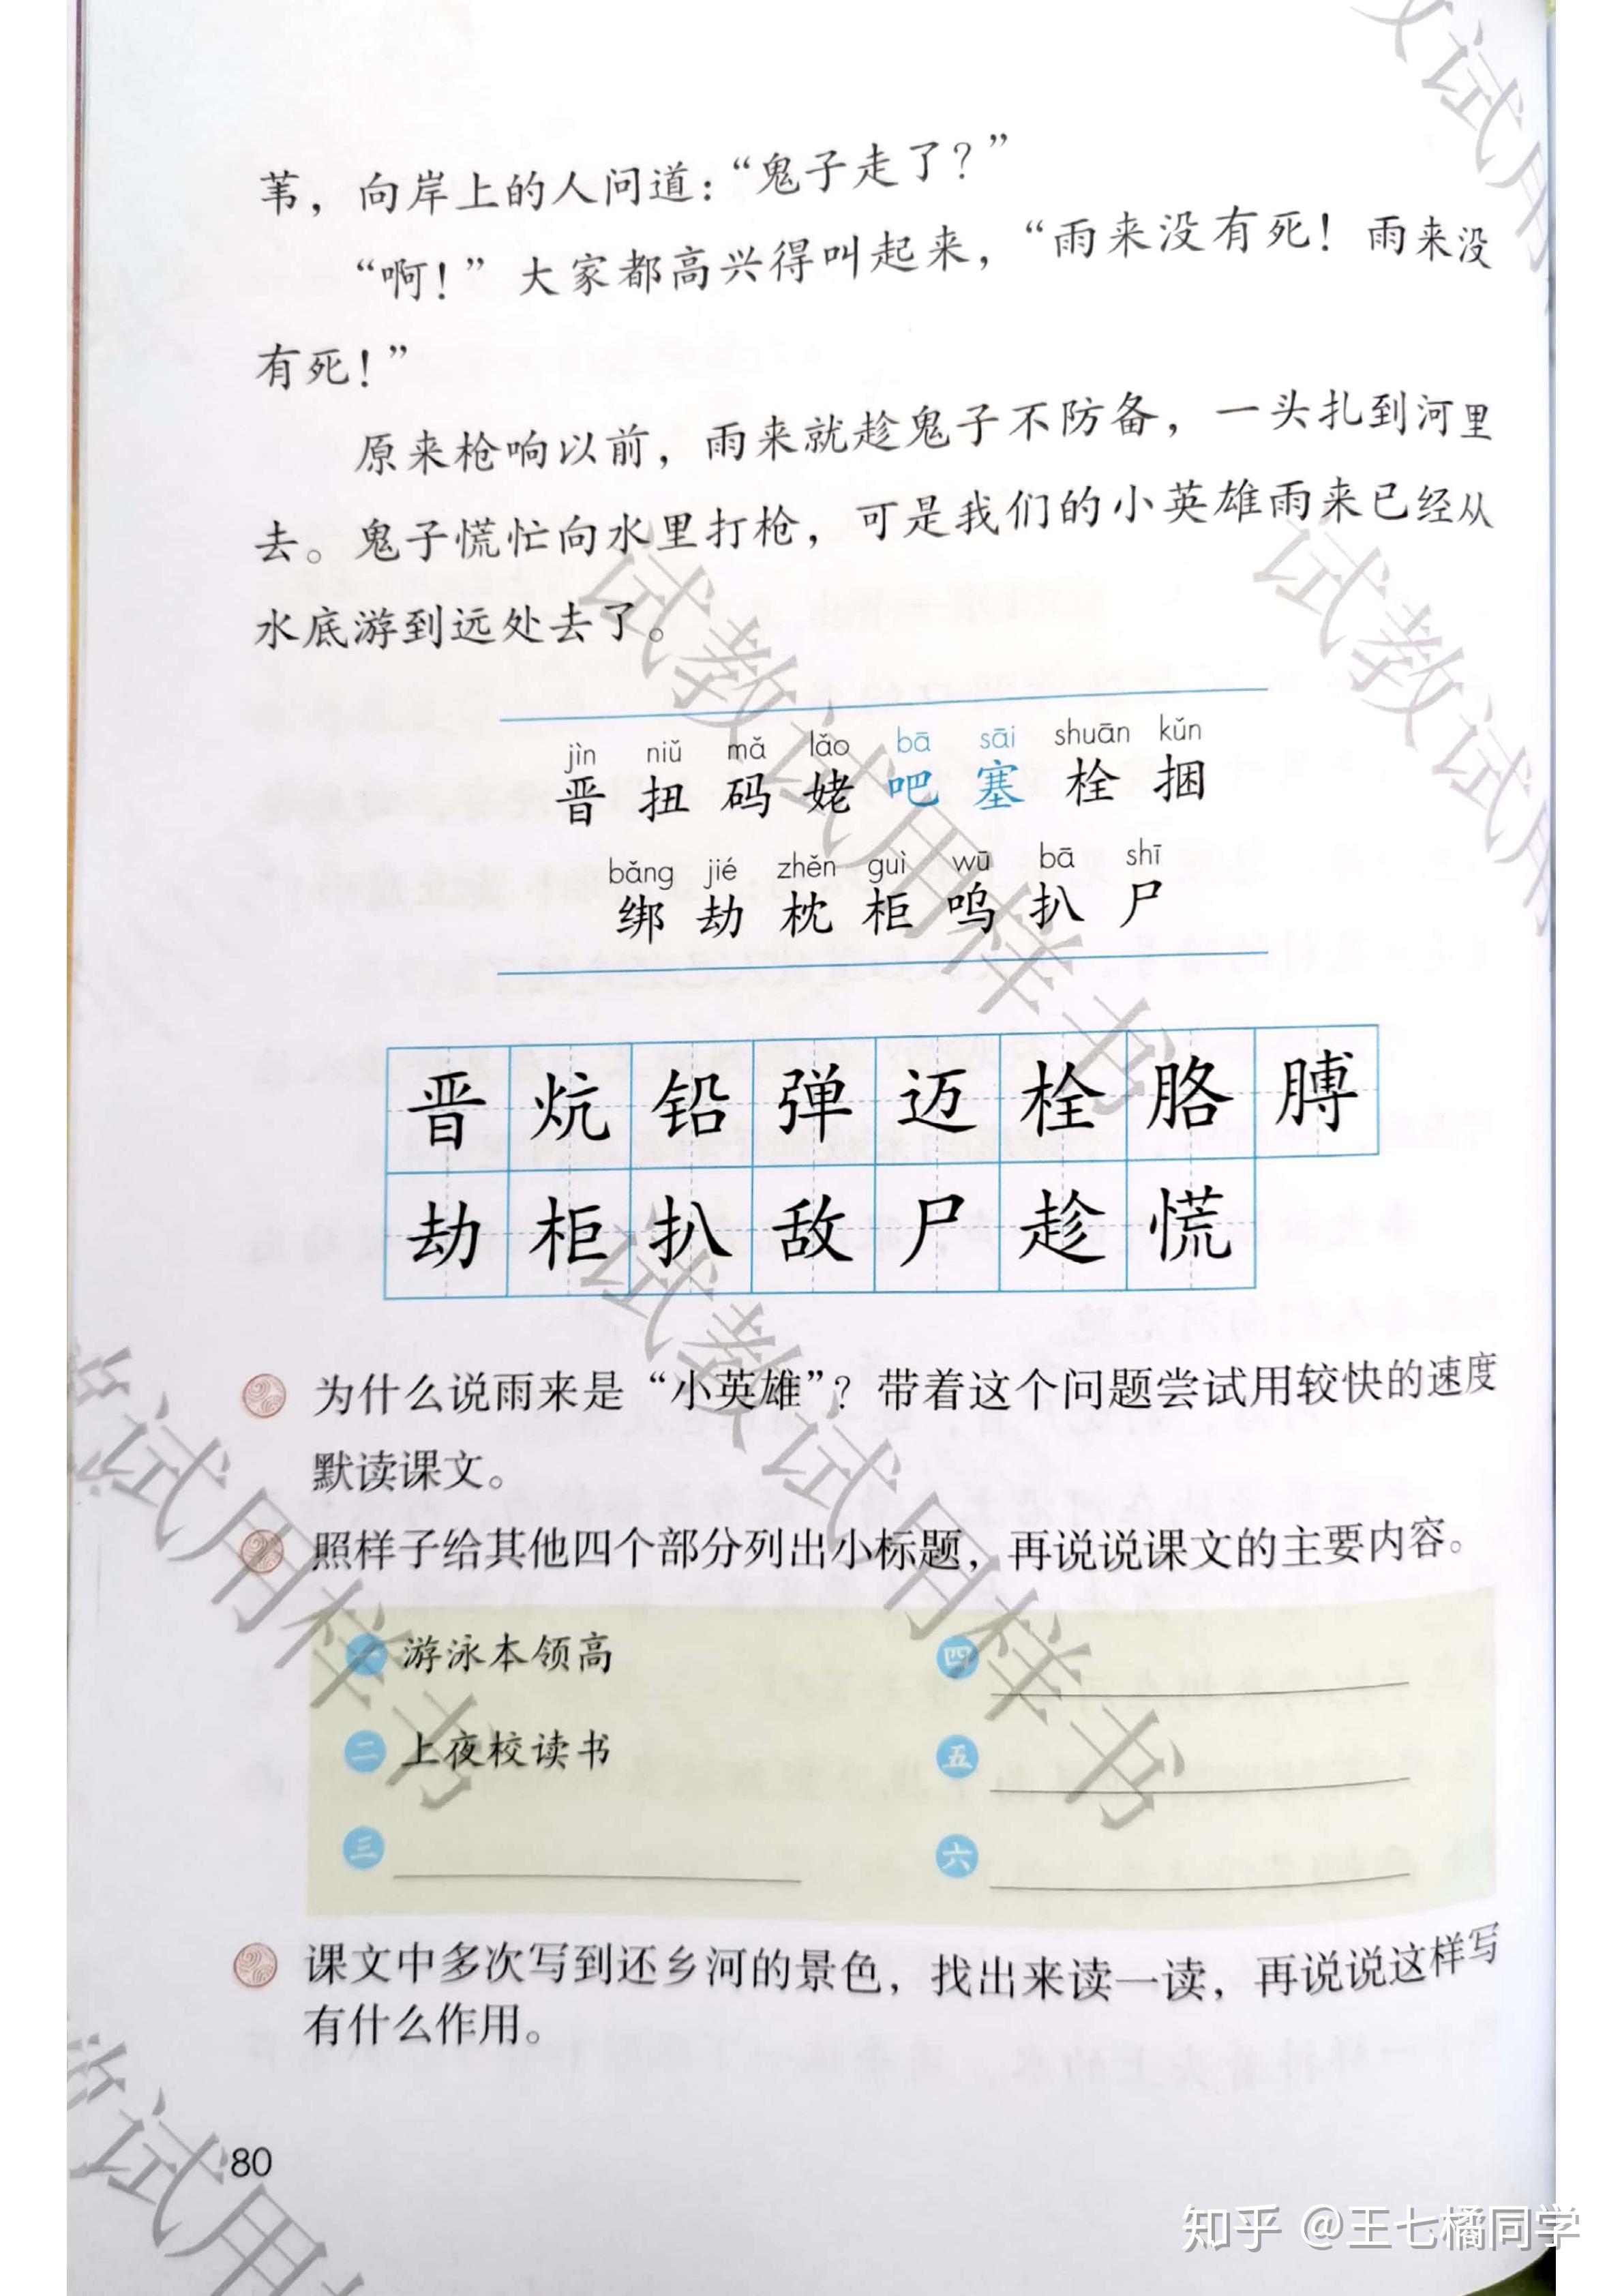 苇，向岸上的人问道：“鬼子走了？”
“啊！”大家都高兴得叫起来，“雨来没有死！雨来没
有死！”
原来枪响以前，雨来就趁鬼子不防备，一头扎到河里
去。鬼子慌忙向水里打枪，可是我们的小英雄雨来已经从
水底游到远处去了。
jìn niǔ mǎ lǎo bā sāi shuān kǔn
晋 扭 码 姥 吧 塞 栓 捆
bǎng jié zhěn guì wū bā shī
绑 劫 枕 柜 呜 扒 尸
晋 炕 铅 弹 迈 栓 胳 膊
劫 柜 扒 敌 尸 趁 慌
为什么说雨来是“小英雄”？带着这个问题尝试用较快的速度
默读课文。
照样子给其他四个部分列出小标题，再说说课文的主要内容。
一 游泳本领高
四
二 上夜校读书
五
三
六
课文中多次写到还乡河的景色，找出来读一读，再说说这样写
有什么作用。
80
试教试用样书
试教试用样书
试教试用样书
知乎 @王七橘同学